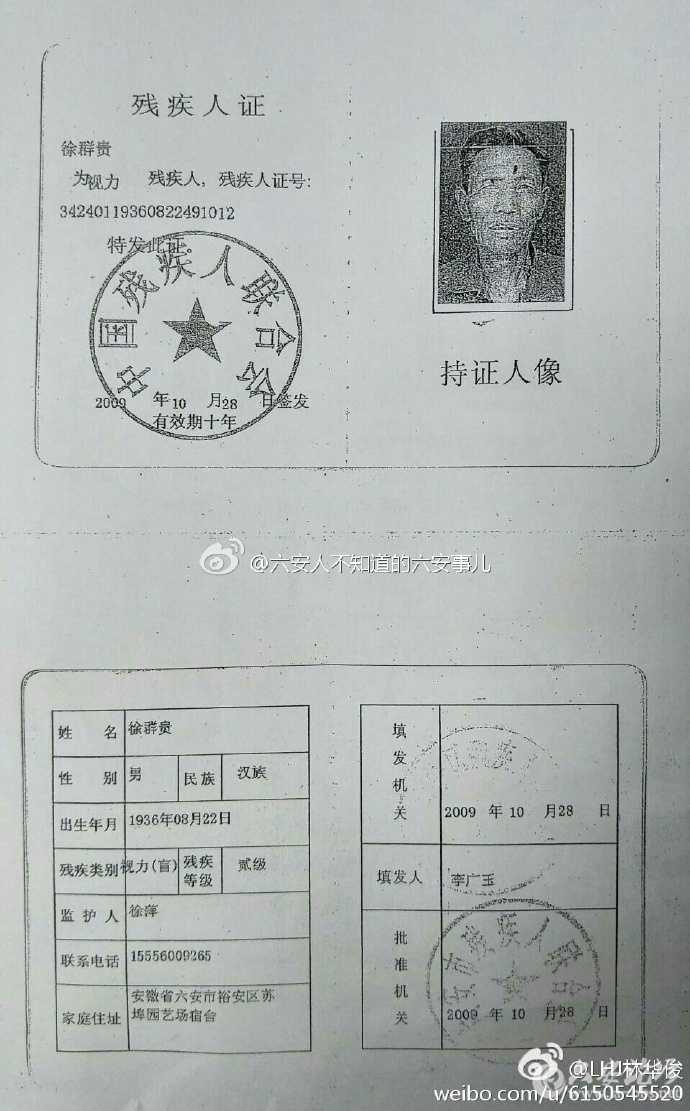 残疾人证
徐群贵
为视力 残疾人，残疾人证号：
34240119360822491012
特发此证。
中国残疾人联合会
2009 年10 月28 日签发
有效期十年
持证人像
@六安人不知道的六安事儿
姓名 徐群贵
性别 男 民族 汉族
出生年月 1936年08月22日
残疾类别 视力(盲) 残疾等级 贰级
监护人 徐萍
联系电话 15556009265
家庭住址 安徽省六安市裕安区苏
埠园艺场宿舍
填发机关
2009 年 10 月28 日
填发人 李广玉
批准机关
安市残疾人联合会
2009 年 10 月28 日
@LHJ林华俊
weibo.com/u/6150545520